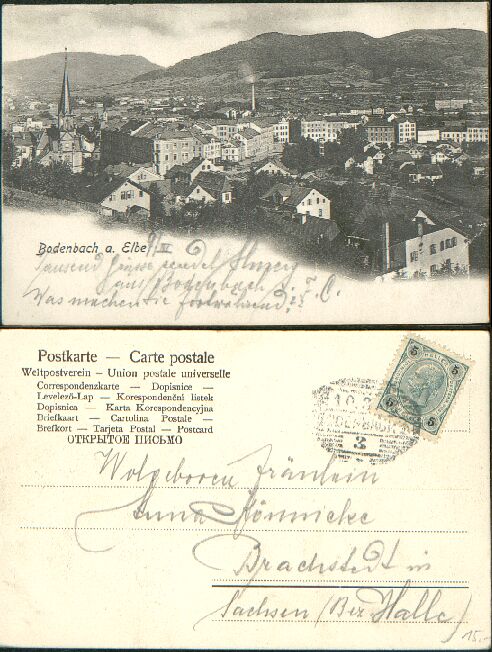 Bodenbach a. Elbe
Tausend Grüsse sendet
aus Bodenbach
Was machen Sie
Postkarte — Carte postale
Weltpostverein – Union postale universelle
Correspondenzkarte – Dopisnice –
Levelező-Lap – Korespondenční listek
Dopisnica – Karta Korespondencyjna
Briefkaart – Cartolina Postale –
Brefkort – Tarjeta Postal – Postcard
ОТКРЫТОЕ ПИСЬМО
5 5
5 5
3
Wolgeboren Fräulein
Anna Könnicke
Brachstedt in
Sachsen (Bez. Halle)
15.-